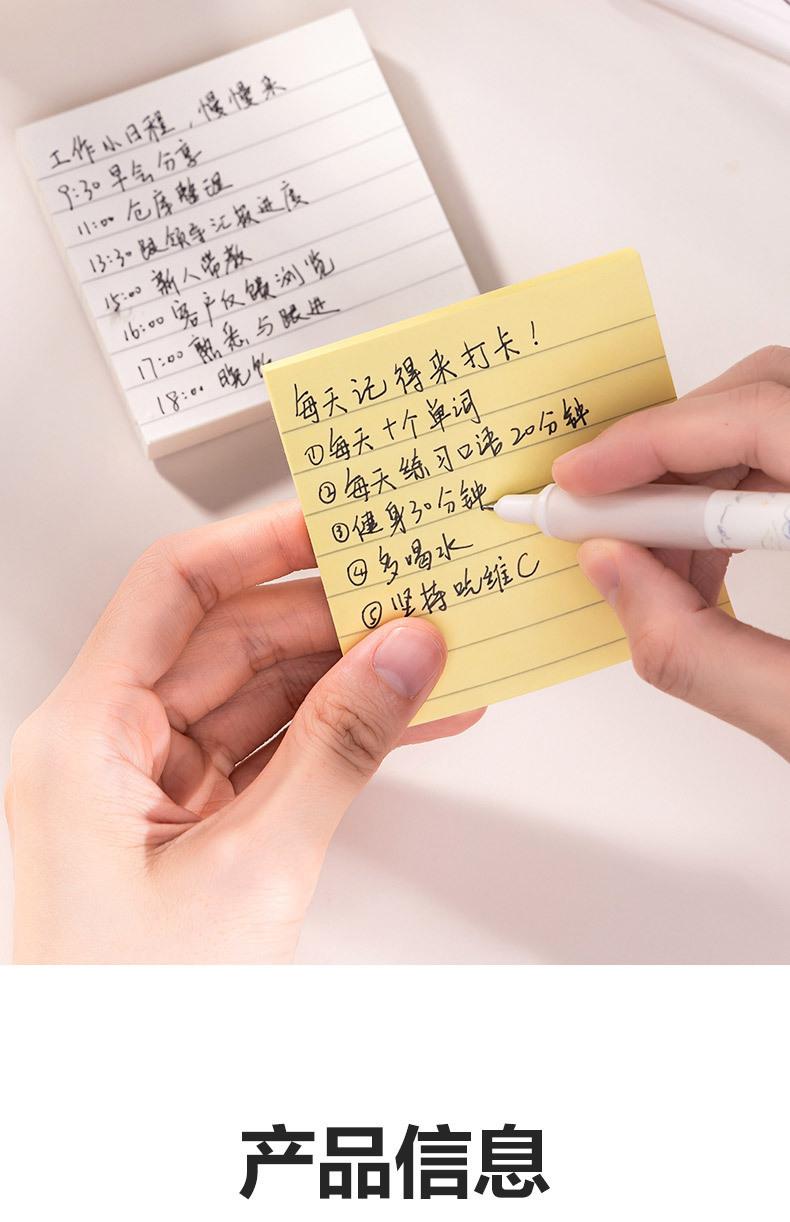 工作小日程，慢慢来
9:30 早会分享
11:00 仓库整理
13:30 跟领导汇报进度
15:00 新人带教
16:00 客户反馈浏览
17:00 熟悉与跟进
18:00 晚
每天记得来打卡！
①每天十个单词
②每天练习口语20分钟
③健身30分钟
④多喝水
⑤坚持吃维C
产品信息